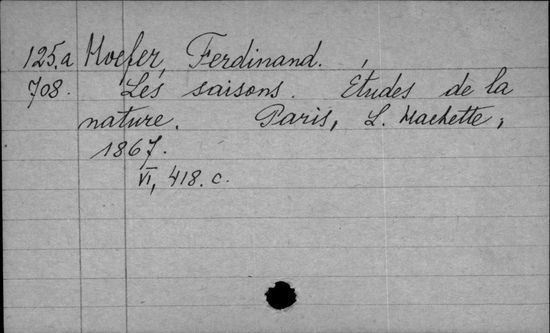 125.a Hoefer, Ferdinand.
708. Les saisons. Études de la
nature. Paris, L. Hachette,
1867.
VI, 418. c.